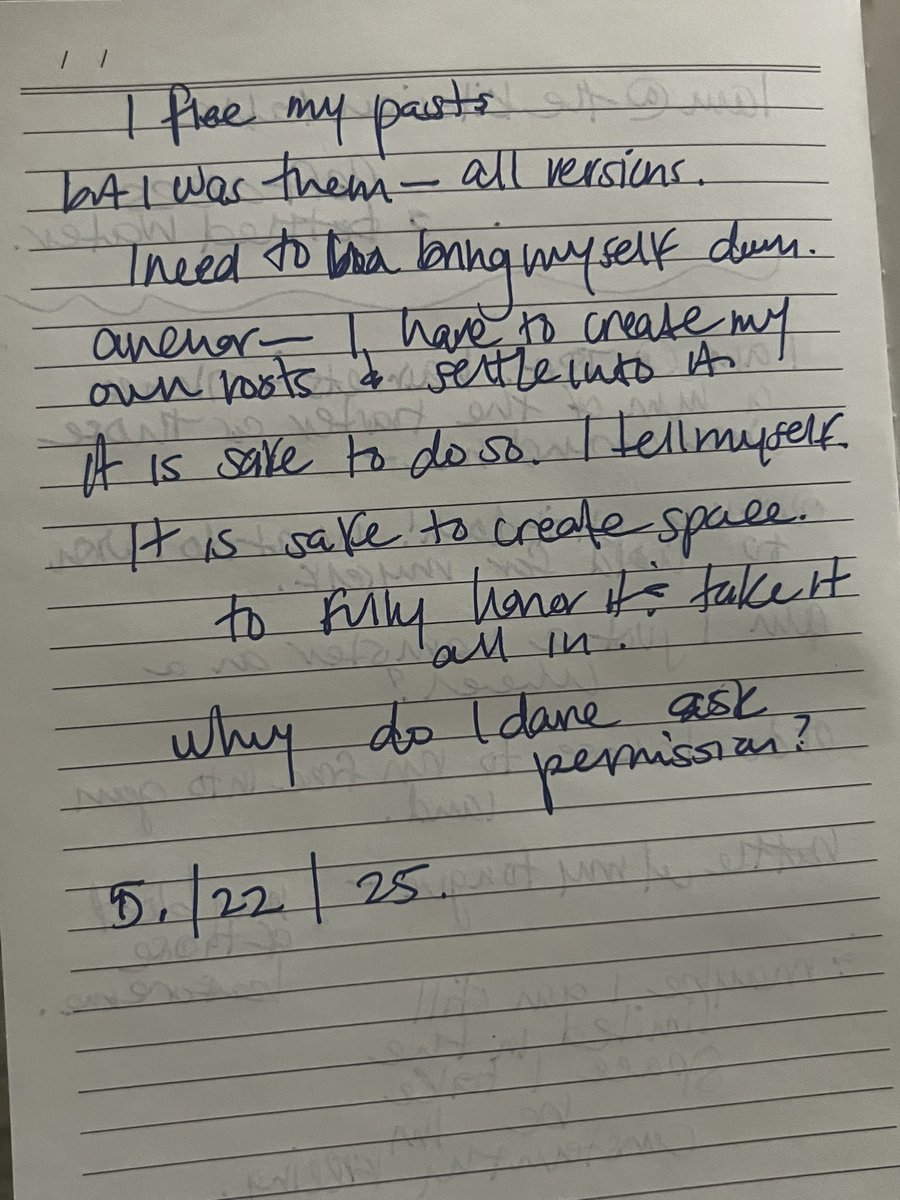 / /
I flee my pasts
but I was them — all versions.
I need to bring myself down.
anchor — I have to create my
own roots & settle into it.
It is safe to do so. I tell myself.
It is safe to create space.
to fully honor it & take it
all in.
why do I dare ask
permission?
5. / 22 / 25.